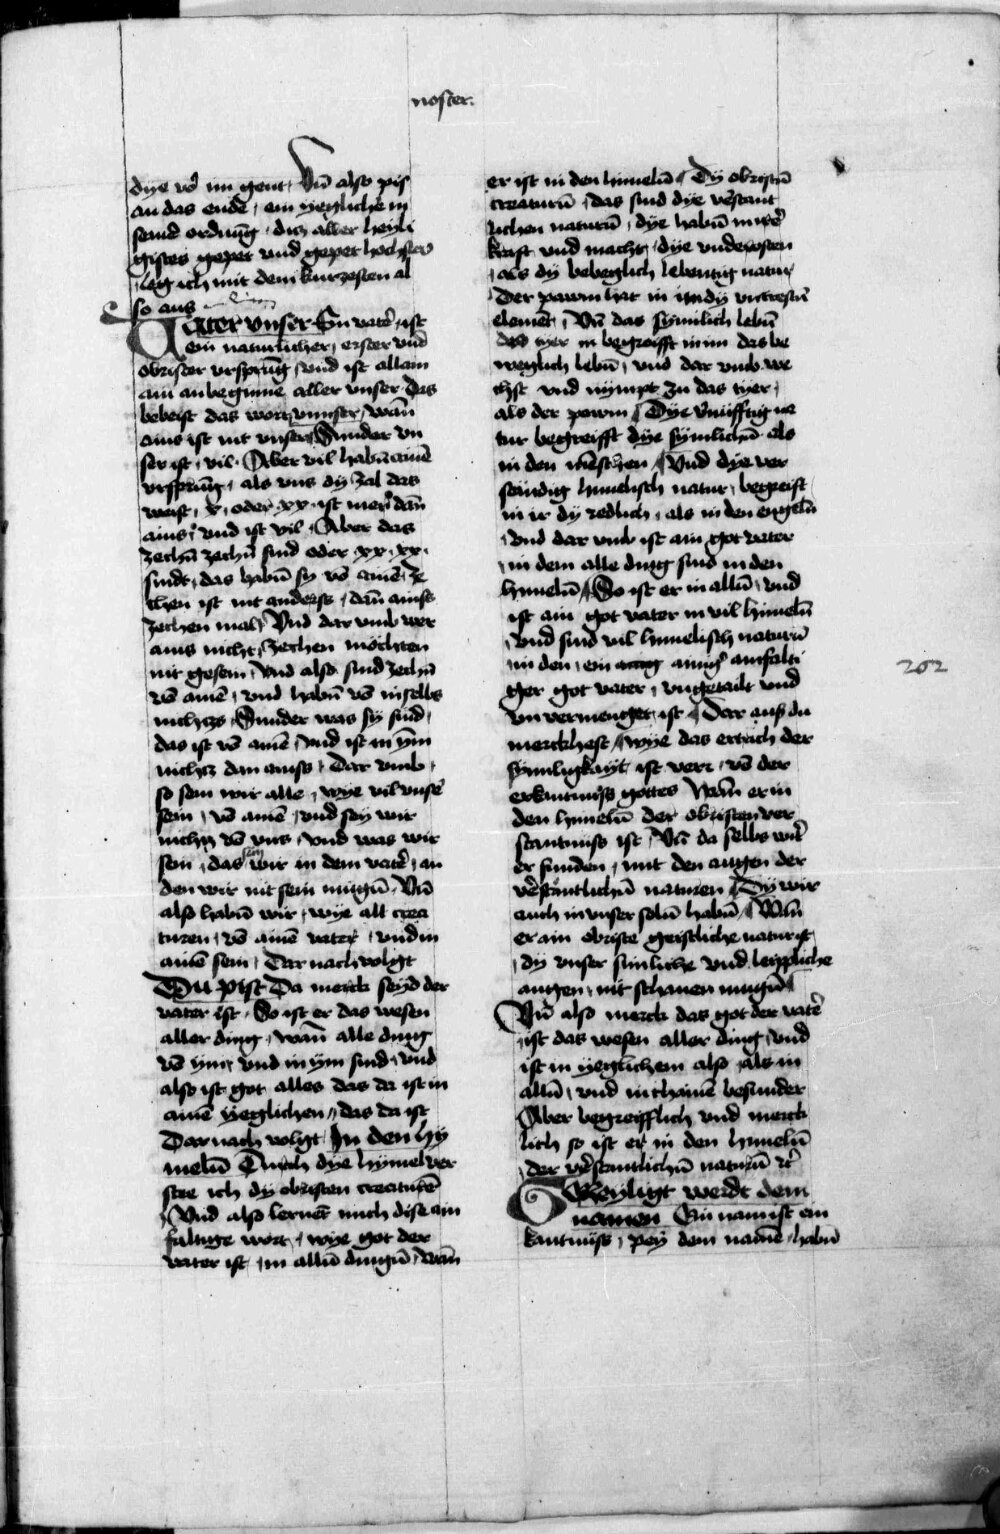 noster.
dye vō im gent / Vn̄ also pis
an das ende / ein yegliche in
seind ordnūg / dicz aller heyli
gistes gepet vnd gepet hochster
leg ich mit dem kurzesten al
so aus
Vater vnser Ein vat̄er ist
ein naturlicher / erster vnd
obrister vrsprūg / vnd ist allain
ain anbeginne aller vnser / das
beweist das wort vnnser / wan̄
ains ist nit vnser Sunder vn
ser ist / vil / Aber vil habn̄ ainē
vrsprūg / als vns dy zal das
weist / x oder xx ist mer dan̄
ains / vnd ist vil / Aber das
zechn̄ zechn̄ sind oder xx / xx
sindt / das habn̄ sy vō ainē / ze
chen ist nit anderss / dan̄ ainss
zechen mal / Vnd dar vmb wer
ains nicht / zechen mochten
nit gesein / Vnd also sind zechn̄
vō ainē / vnd habn̄ vō in selbs
nichczs / Sunder was sy sind /
das ist vō ainē / vnd ist in ym̄
nichcz dan ainss / Dar vmb /
so sein wir alle / wye vil vnser̄
sein / vō ainē / vnd sey wir
nichcz vō vns / vnd was wir
sein / das sein wir in dem vater̄ / an
den wir nit sein mugn̄ / Vn̄
also habn̄ wir / wye all crea
turen / vō ainē vater / vnd in
ainē sein / Dar nach volgt
Du pist Da merck seyd der
vater ist / So ist er das wesen
aller ding / wan̄ alle ding
vō ym / vnd in ym sind / vnd
also ist got alles das da ist in
ainē yeglichen / das da ist
Dar nach volgt In den hy
meln̄ Durch dye hymel ver
stee ich dy obristen creaturē
Vnd also lernet mich dise ain
faltige wort / wye got der
vater ist / in alln̄ dingn̄ / wan̄
er ist in den himeln̄ / Dy obristn̄
creaturn̄ / das sind dye v̄stant
lichen naturn̄ / dye habn̄ in irer̄
krafft vnd macht / dye vnderosten
als dy beweglich lebentig natur
Der pawm hat in im dy vntrestn̄
element / Vn̄ das synnlich lebn̄
des tyer in begreifft in im das be
weglich lebn̄ / vnd dar vmb we
chst vnd nympt zu das tyer /
als der pawm / Dye v̄nufftig na
tur begreifft dye synnlichn̄ als
in den mēschen / Vnd dye ver
standig himelisch natur / begreift
in ir dy redlich / als in den engeln̄
vnd dar vmb ist ain got vater
in dem alle ding sind in den
himeln̄ / So ist er in alln̄ / vnd
ist ain got vater in vil himeln̄
vnd sind vil himelisch naturn̄
in den / ein ainiḡ ainfalti
ger got vater / vngetailt vnd
vnvermenget ist / Dar aus du
merckhest / wye das ertrich der
synnligkayt ist verr / vō der
erkantnuss gottes Wan̄ er in
den himeln̄ der obristen ver
stantnuss ist / Vn̄ da selbs wir̄t
er funden / mit den augen der
v̄stantlichn̄ naturen / Dy wir
auch in vnser seln̄ habn̄ / Wan̄
er ain obriste geistliche natur ist
dy vnser sinliche vnd leippliche
augen / nit schauen mugn̄ /
Vn̄ also merck das got der vater̄
ist das wesen aller ding / vnd
ist in yeglichem also / als in
alln̄ / vnd in chainē besunder
Aber begreifflich vnd merck
lich so ist er in den himeln̄
der v̄stantlichn̄ naturn̄ ꝛc̄
Geheyligt werdt dein
namen Ein nam ist ein
kantnüss / pey dem namē / habn̄
202